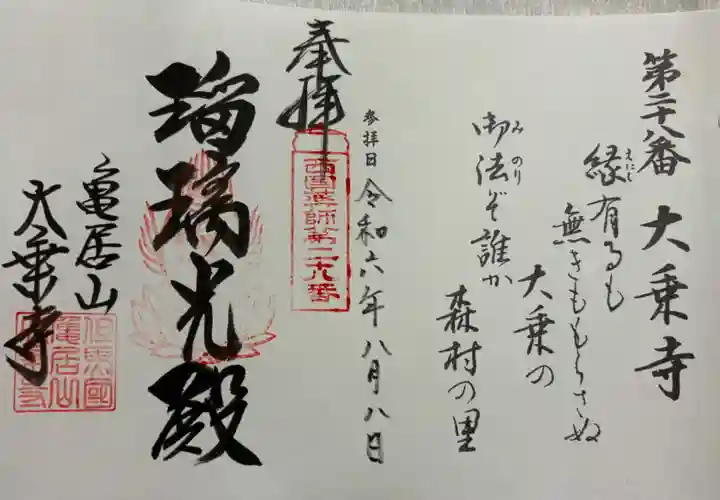 第二十八番 大乗寺
縁有るも
えにし
無きももらさぬ
大乗の
御法ぞ誰か
みのり
森村の里
参拝日 令和六年八月八日
奉拝
西国薬師第二十八番
瑠璃光殿
亀居山
大乗寺